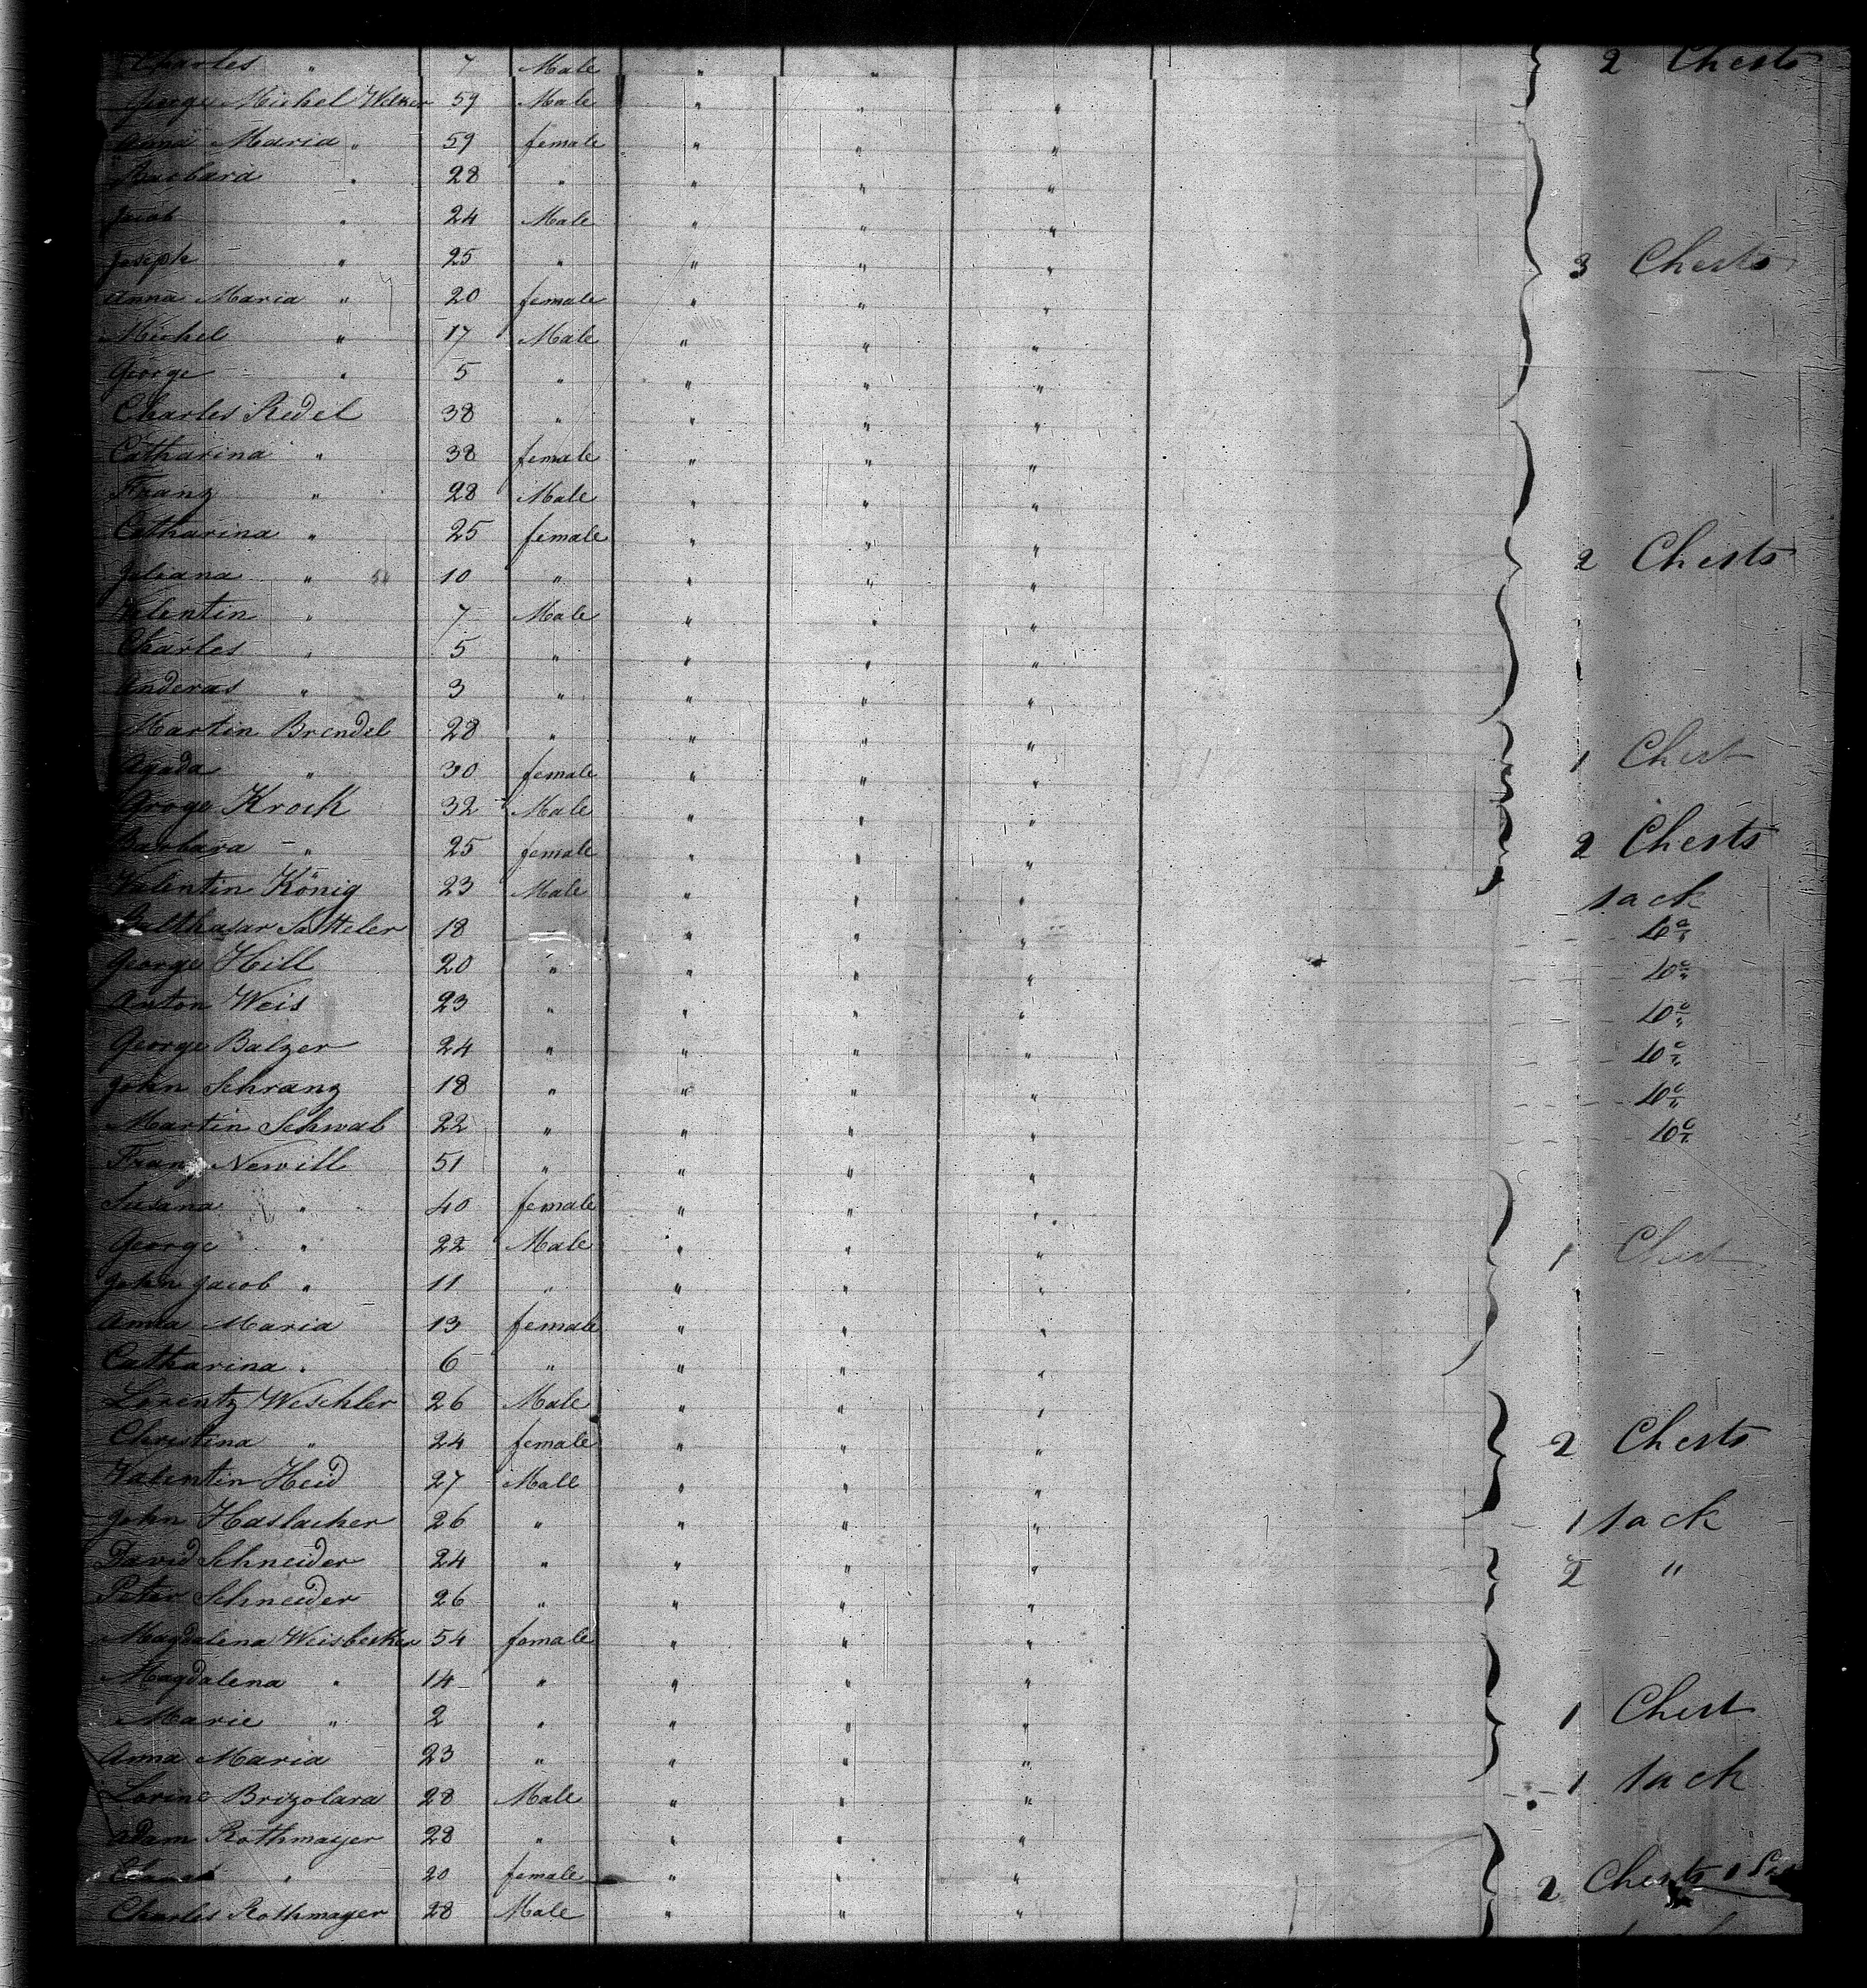 Charles " 7 Male " " 2 Chests
George Michel Welker 59 Male " " "
Anna Maria " 59 female " " "
Barbara " 28 " " " "
Jacob " 24 Male " " "
Joseph " 25 " " " " 3 Chests
Anna Maria " 20 female " " "
Michel " 17 Male " " "
George " 5 " " " "
Charles Redel 38 " " " "
Catharina " 38 female " " "
Franz " 28 Male " " "
Catharina " 25 female " " " 2 Chests
Juliana " 10 " " " "
Valentin " 7 Male " " "
Charles " 5 " " " "
Anderas " 3 " " " "
Martin Brendel 28 " " " " 1 Chest
Agada " 30 female " " "
George Krock 32 Male " " "
Barbara " 25 female " " " 2 Chests
Valentin König 23 Male " " " 1 sack
Balthasar Satteler 18 " " " " do
George Hill 20 " " " " do
Anton Weis 23 " " " " do
George Balzer 24 " " " " do
John Schranz 18 " " " " do
Martin Schwab 22 " " " " do
Franz Newill 51 " " " "
Susana " 40 female " " "
George " 22 Male " " " 1 Chest
John Jacob " 11 " " " "
Anna Maria 13 female " " "
Catharina " 6 " " " "
Lorentz Weschler 26 Male " " "
Christina " 24 female " " " 2 Chests
Valentin Heid 27 Male " " "
John Haslacher 26 " " " " 1 sack
David Schneider 24 " " " " 2 "
Peter Schneider 26 " " " "
Magdalena Weisbecker 54 female " " "
Magdalena " 14 " " " "
Marie " 2 " " " " 1 Chest
Anna Maria 23 " " " "
Lorine Brizolara 28 Male " " " 1 sack
Adam Rothmayer 28 " " " "
" 20 female " " " 2 Chests 1
Charles Rothmayer 28 Male " " "